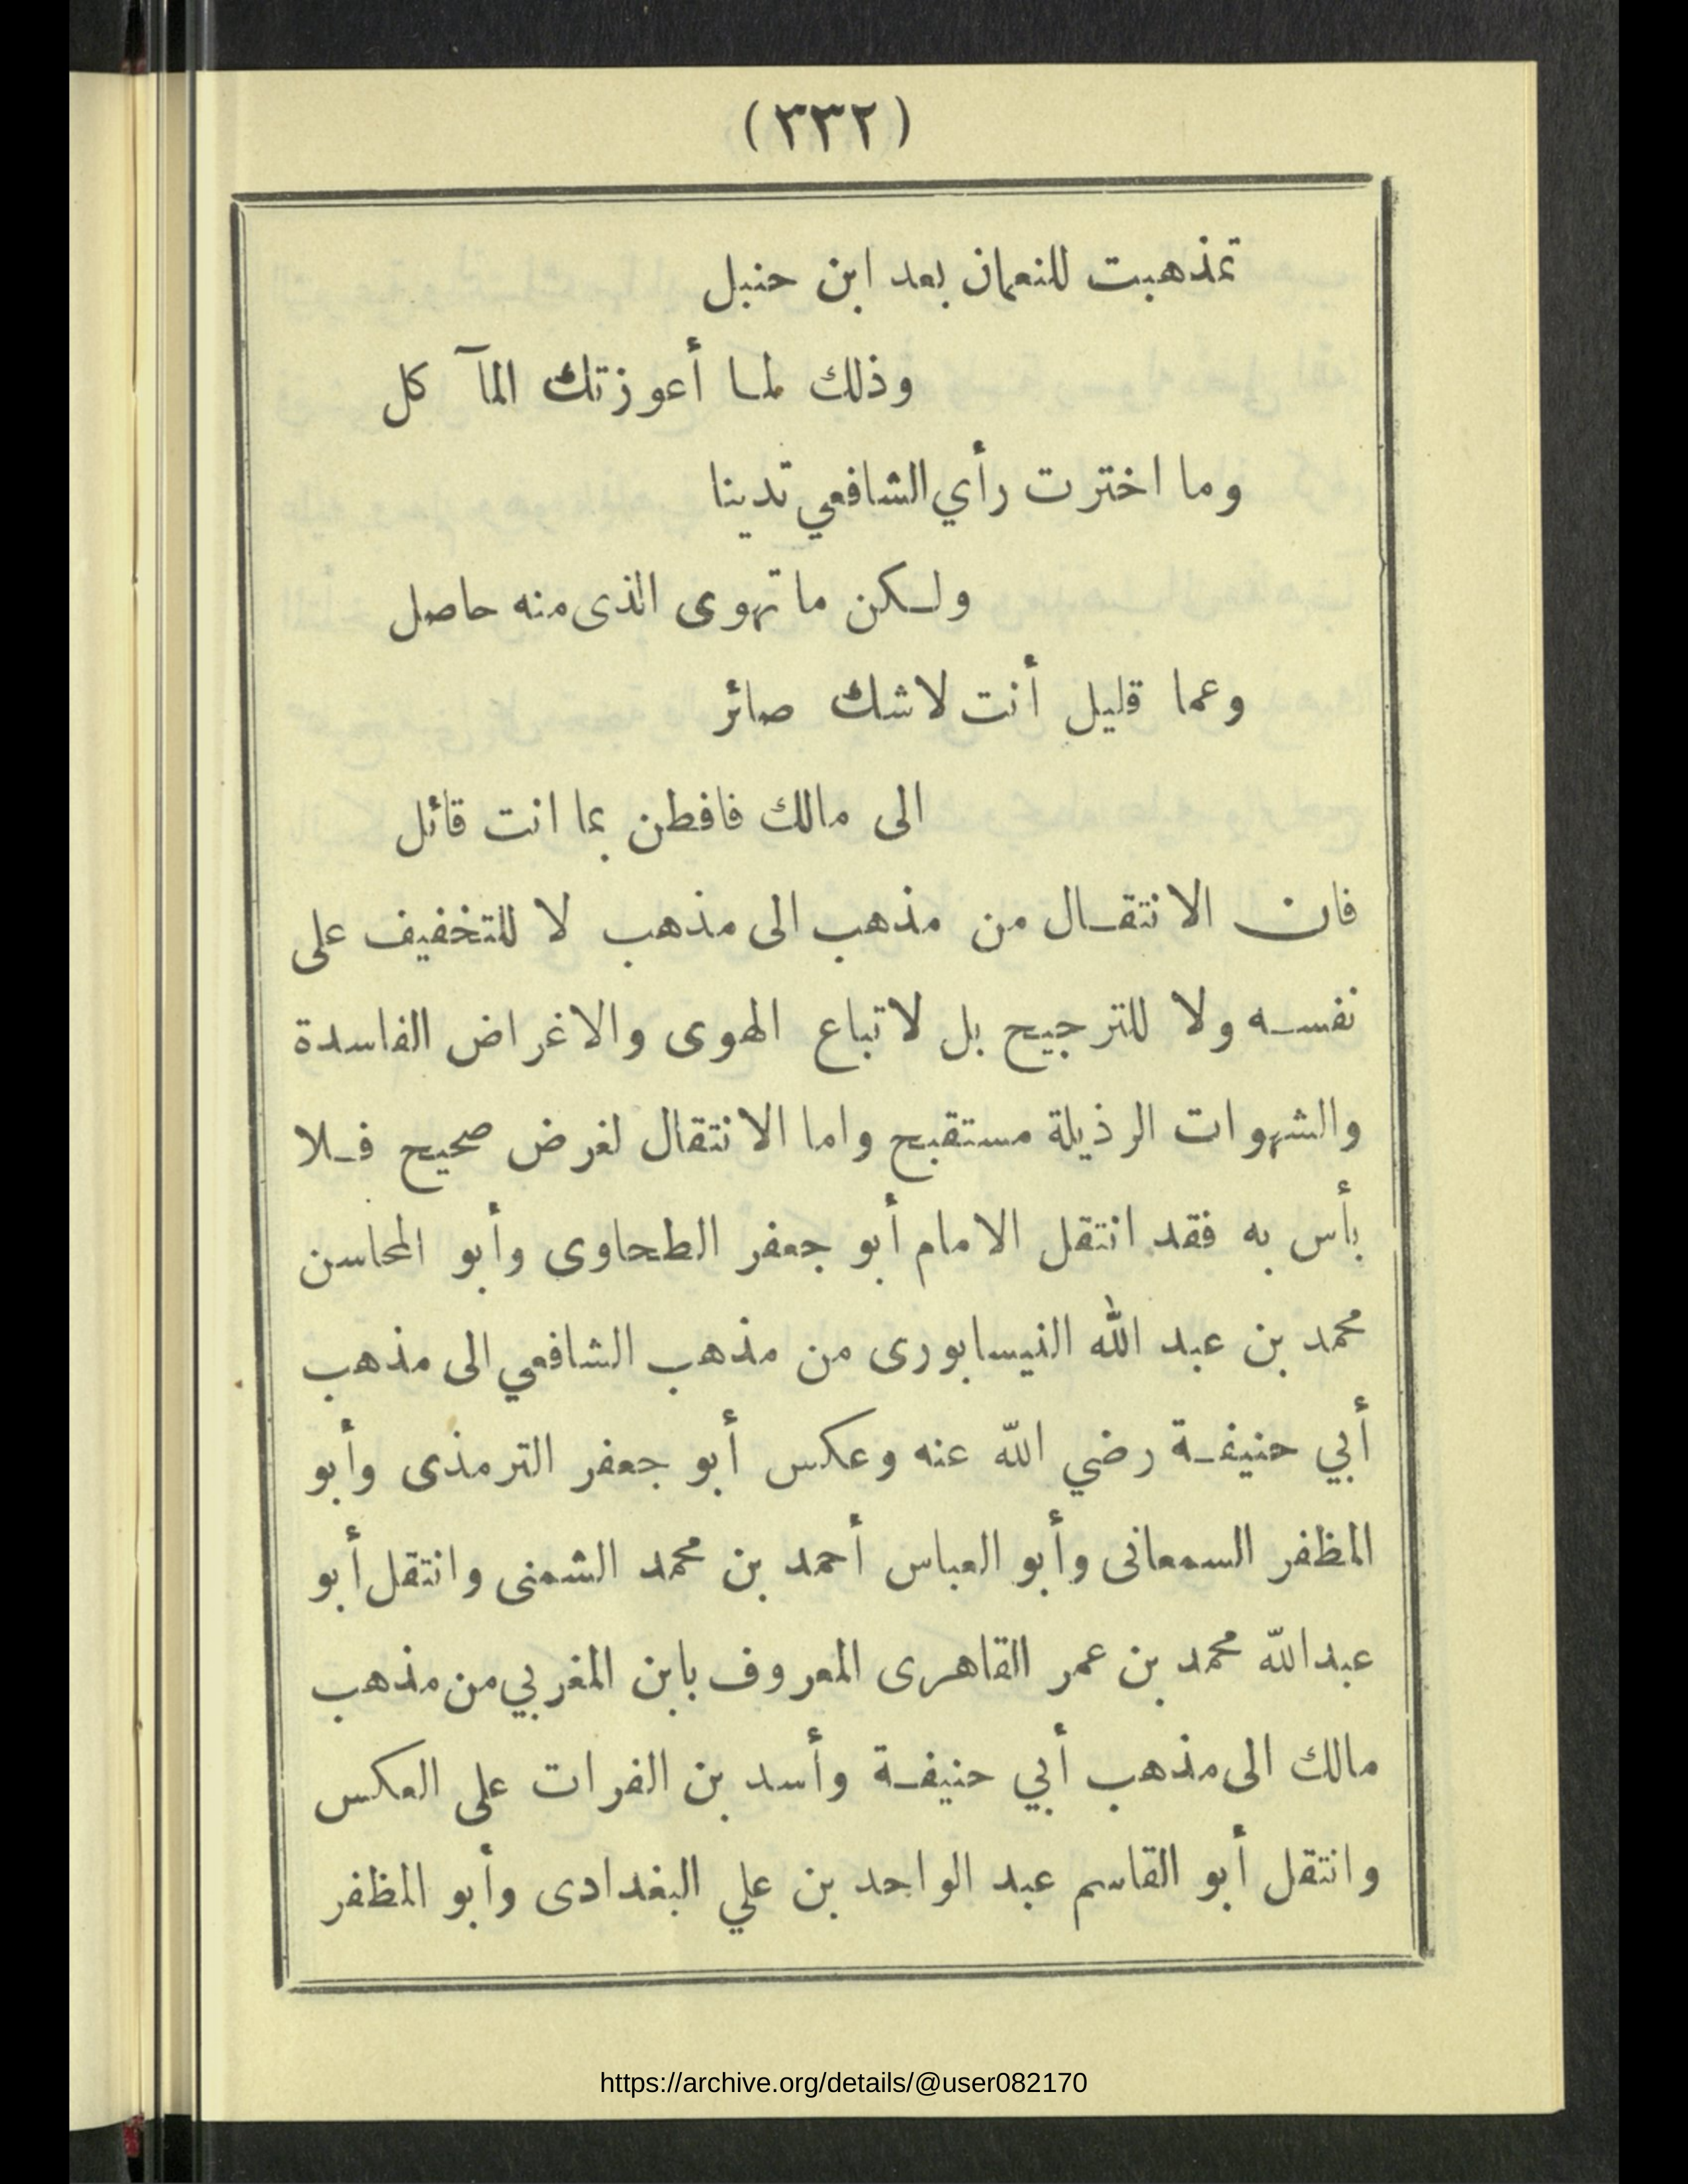 (٣٣٢)
تمذهبت للنعمان بعد ابن حنبل
وذلك لما أعوزتك المآ كل
وما اخترت رأي الشافعي تدينا
ولكن ما تهوى الذى منه حاصل
وعما قليل أنت لاشك صائر
الى مالك فافطن بما انت قائل
فان الانتقال من مذهب الى مذهب لا للتخفيف على
نفسه ولا للترجيح بل لاتباع الهوى والاغراض الفاسدة
والشهوات الرذيلة مستقبح واما الانتقال لغرض صحيح فلا
بأس به فقد انتقل الامام أبو جعفر الطحاوى وأبو المحاسن
محمد بن عبد الله النيسابورى من مذهب الشافعي الى مذهب
أبي حنيفة رضي الله عنه وعكس أبو جعفر الترمذى وأبو
المظفر السمعانى وأبو العباس أحمد بن محمد الشمنى وانتقل أبو
عبدالله محمد بن عمر القاهرى المعروف بابن المغربي من مذهب
مالك الى مذهب أبي حنيفة وأسد بن الفرات على العكس
وانتقل أبو القاسم عبد الواحد بن علي البغدادى وأبو المظفر
https://archive.org/details/@user082170